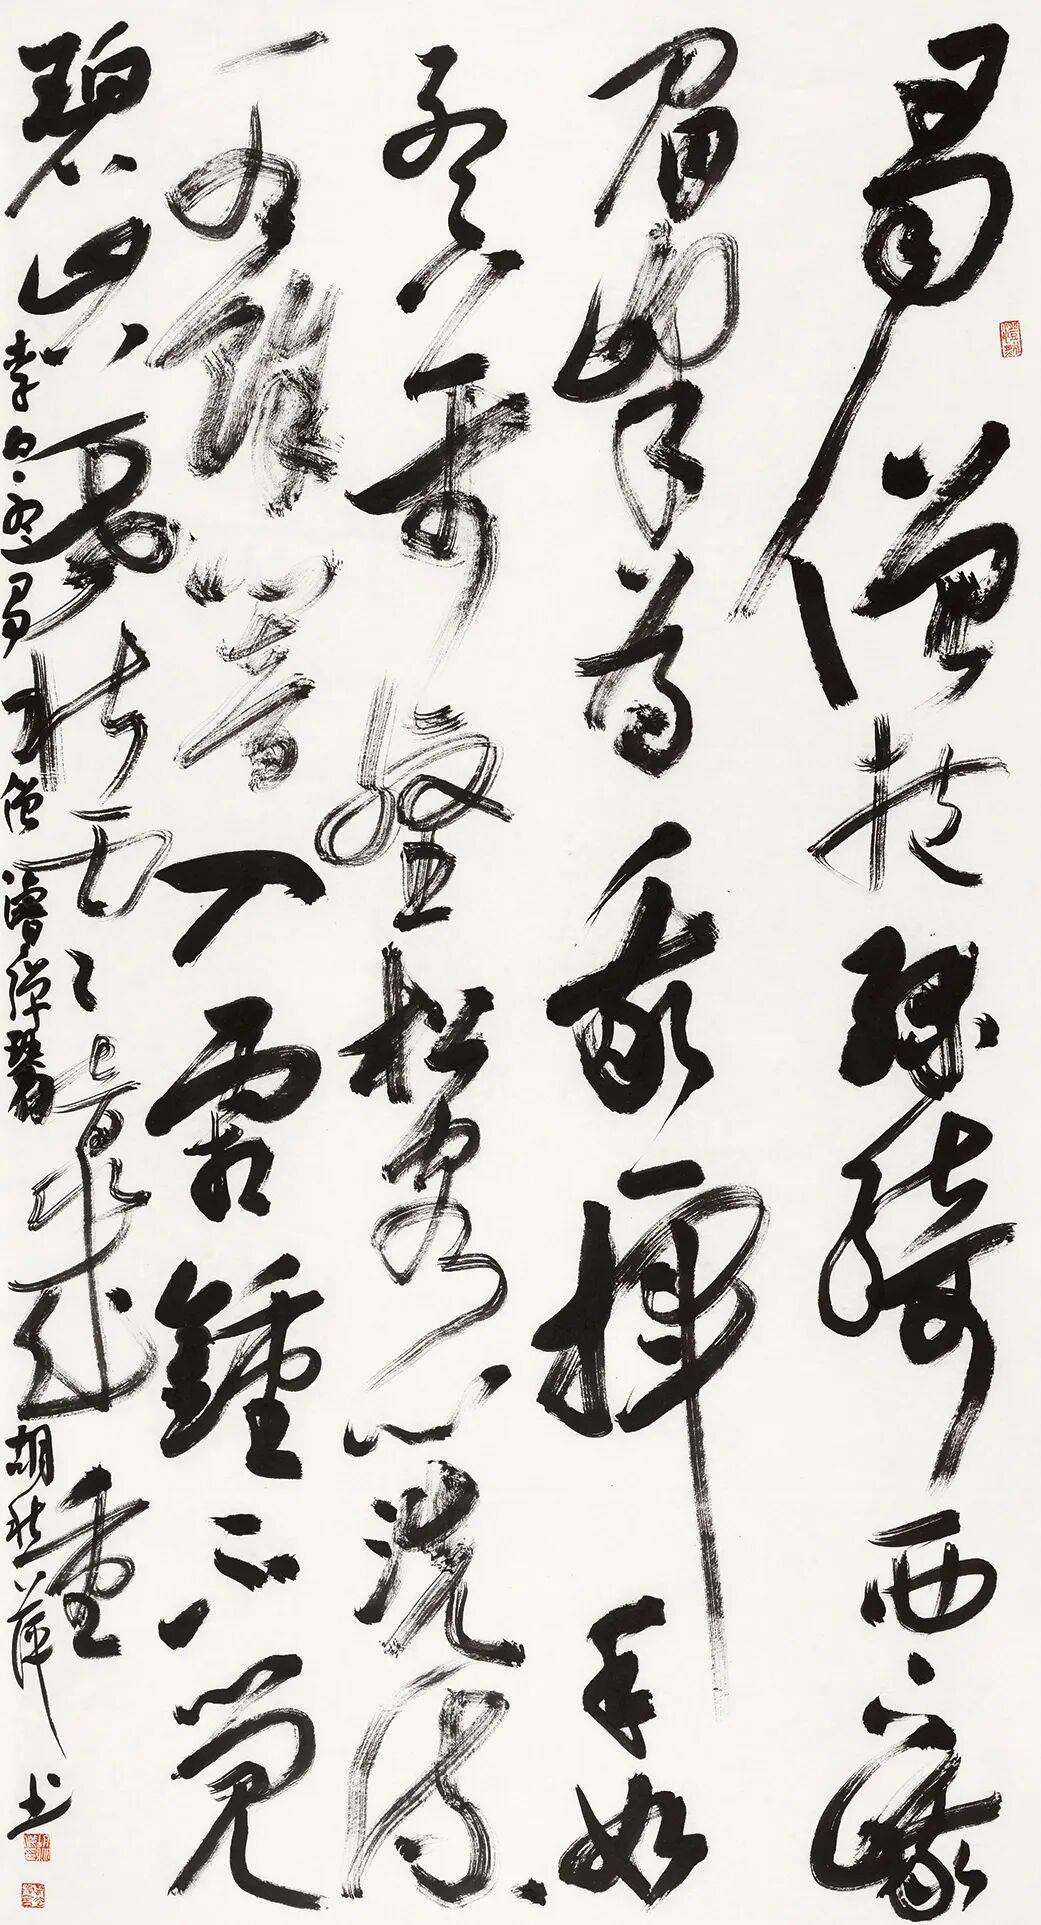 蜀僧抱綠綺西下峨
眉峰為我一揮手如
聽萬壑松客心洗流
水餘響入霜鍾不覺
碧山暮秋雲暗幾重
李白聽蜀僧濬彈琴 胡秋萍书